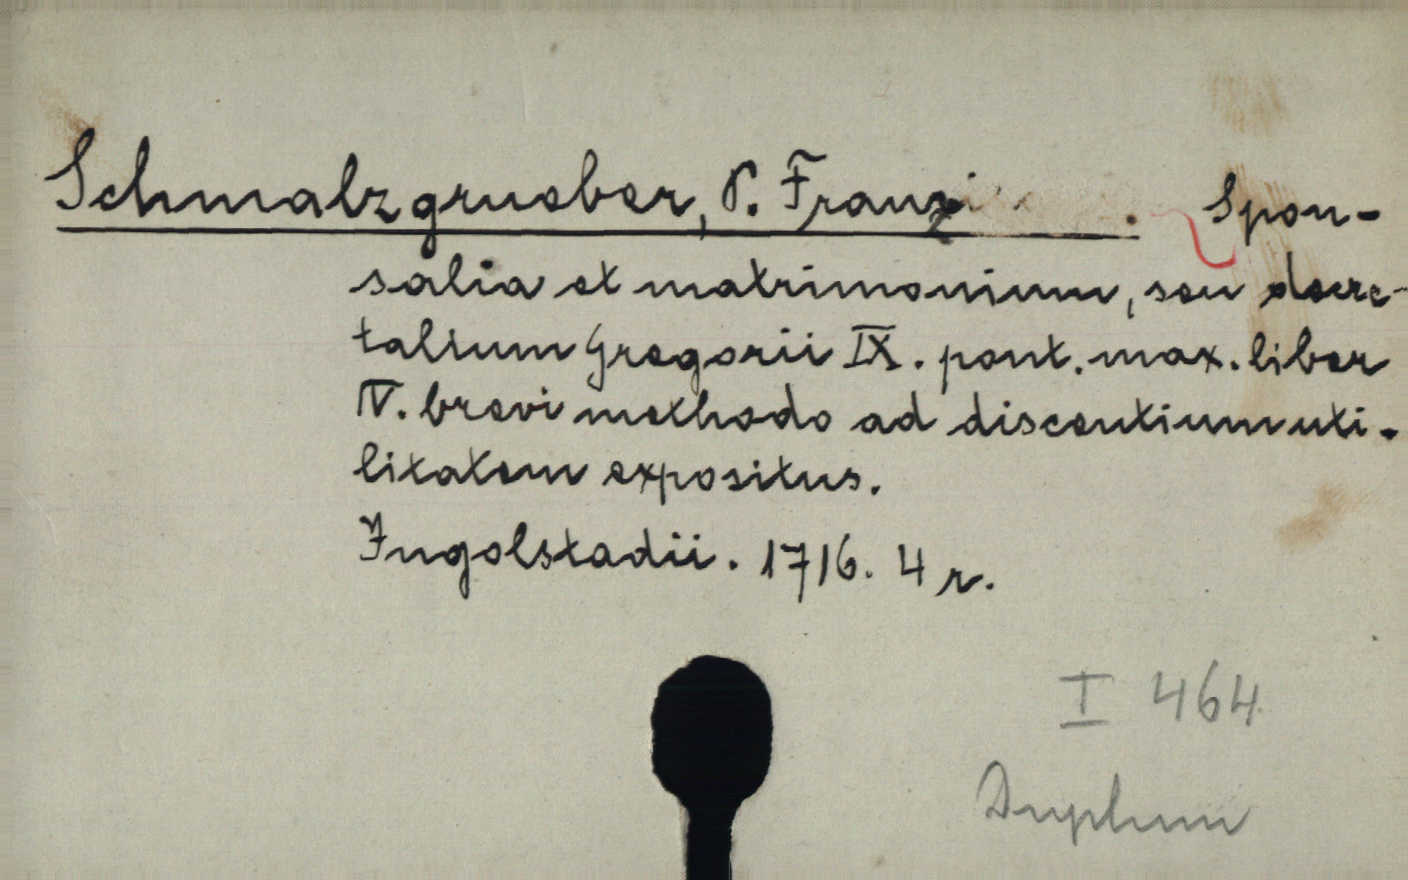 Schmalzgrueber, P. Franz. Spon-
salia et matrimonium, seu decre-
talium Gregorii IX. pont. max. liber
IV. brevi methodo ad discentium uti-
litatem expositus.
Ingolstadii. 1716. 4 r.
I 464
Duplum